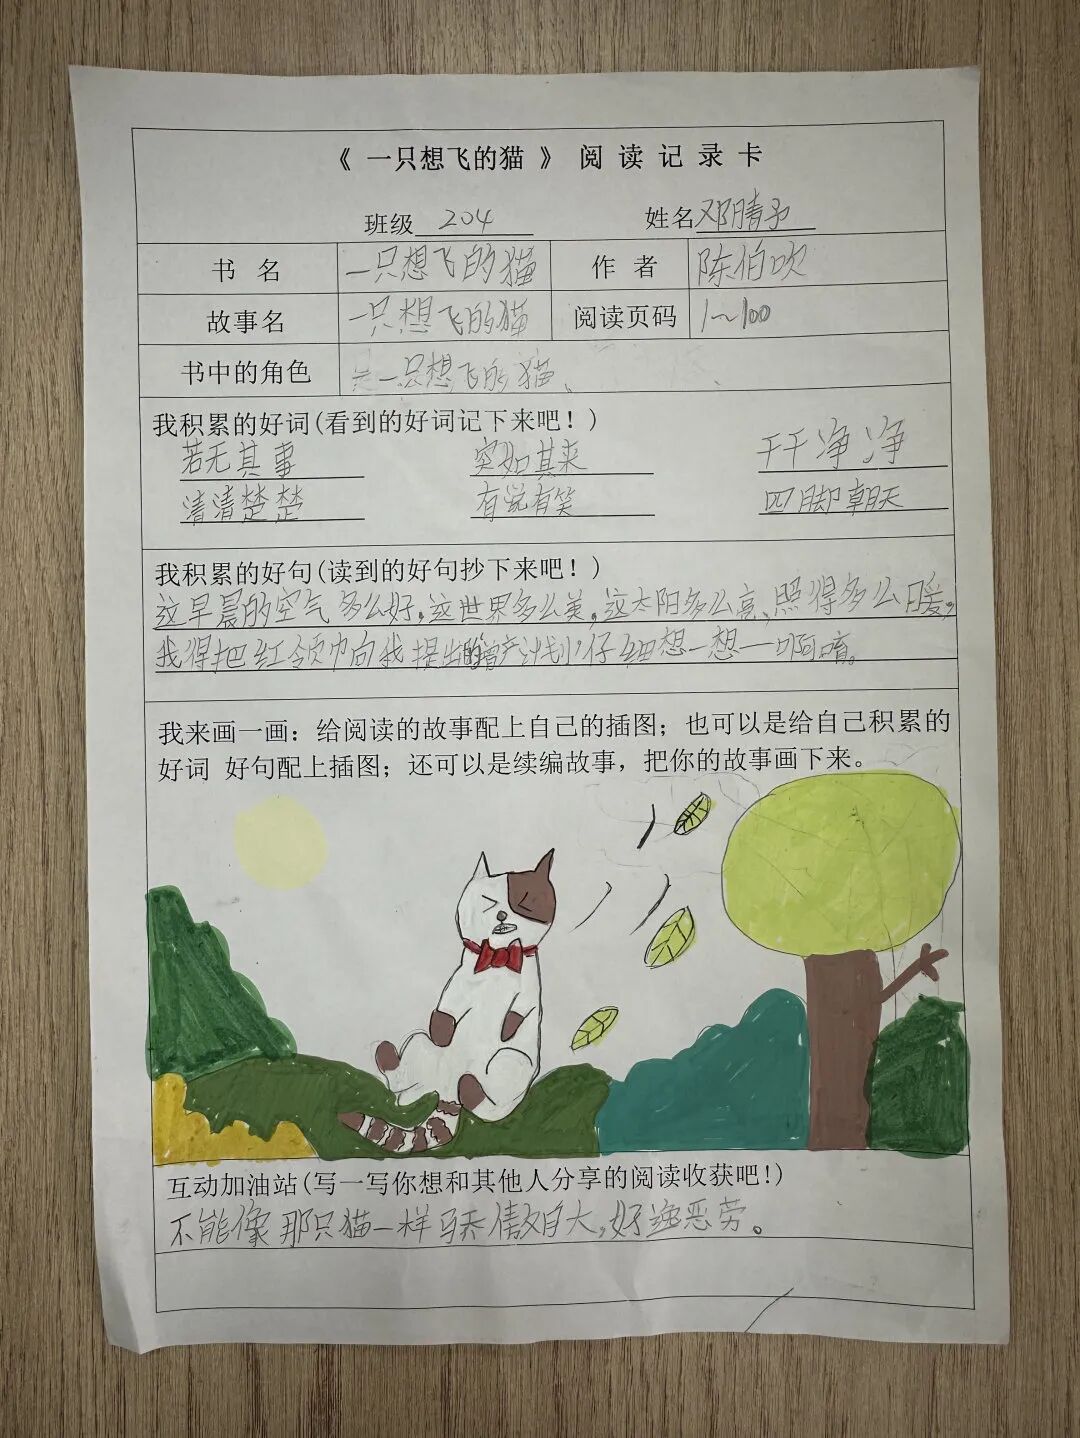 《 一只想飞的猫 》 阅 读 记 录 卡
班级 204 姓名 邓晴予
书 名 一只想飞的猫 作 者 陈伯吹
故事名 一只想飞的猫 阅读页码 1~100
书中的角色 一只想飞的猫、
我积累的好词(看到的好词记下来吧！)
若无其事 突如其来 干干净净
清清楚楚 有说有笑 四脚朝天
我积累的好句(读到的好句抄下来吧！)
这早晨的空气多么好，这世界多么美，这太阳多么亮、照得多么暖，
我得把红领巾向我提出的增产计划，仔细想一想一啊唷。
我来画一画：给阅读的故事配上自己的插图；也可以是给自己积累的
好词 好句配上插图；还可以是续编故事，把你的故事画下来。
互动加油站(写一写你想和其他人分享的阅读收获吧!)
不能像那只猫一样骄傲自大，好逸恶劳。